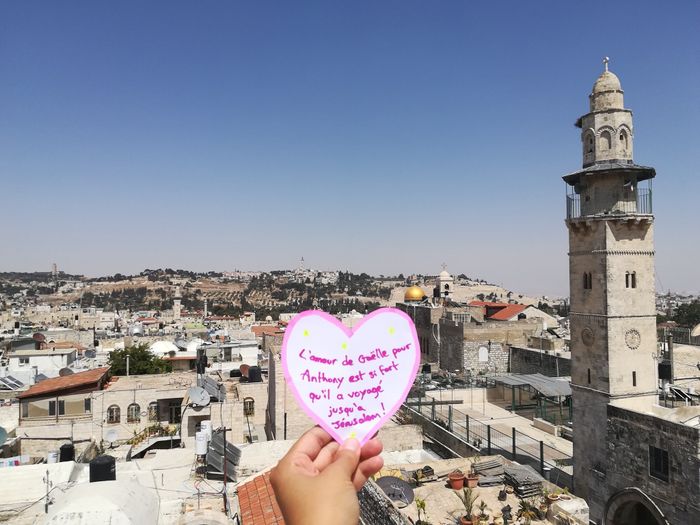 L'amour de Gaëlle pour
Anthony est si fort
qu'il a voyagé
jusqu'à
Jérusalem !